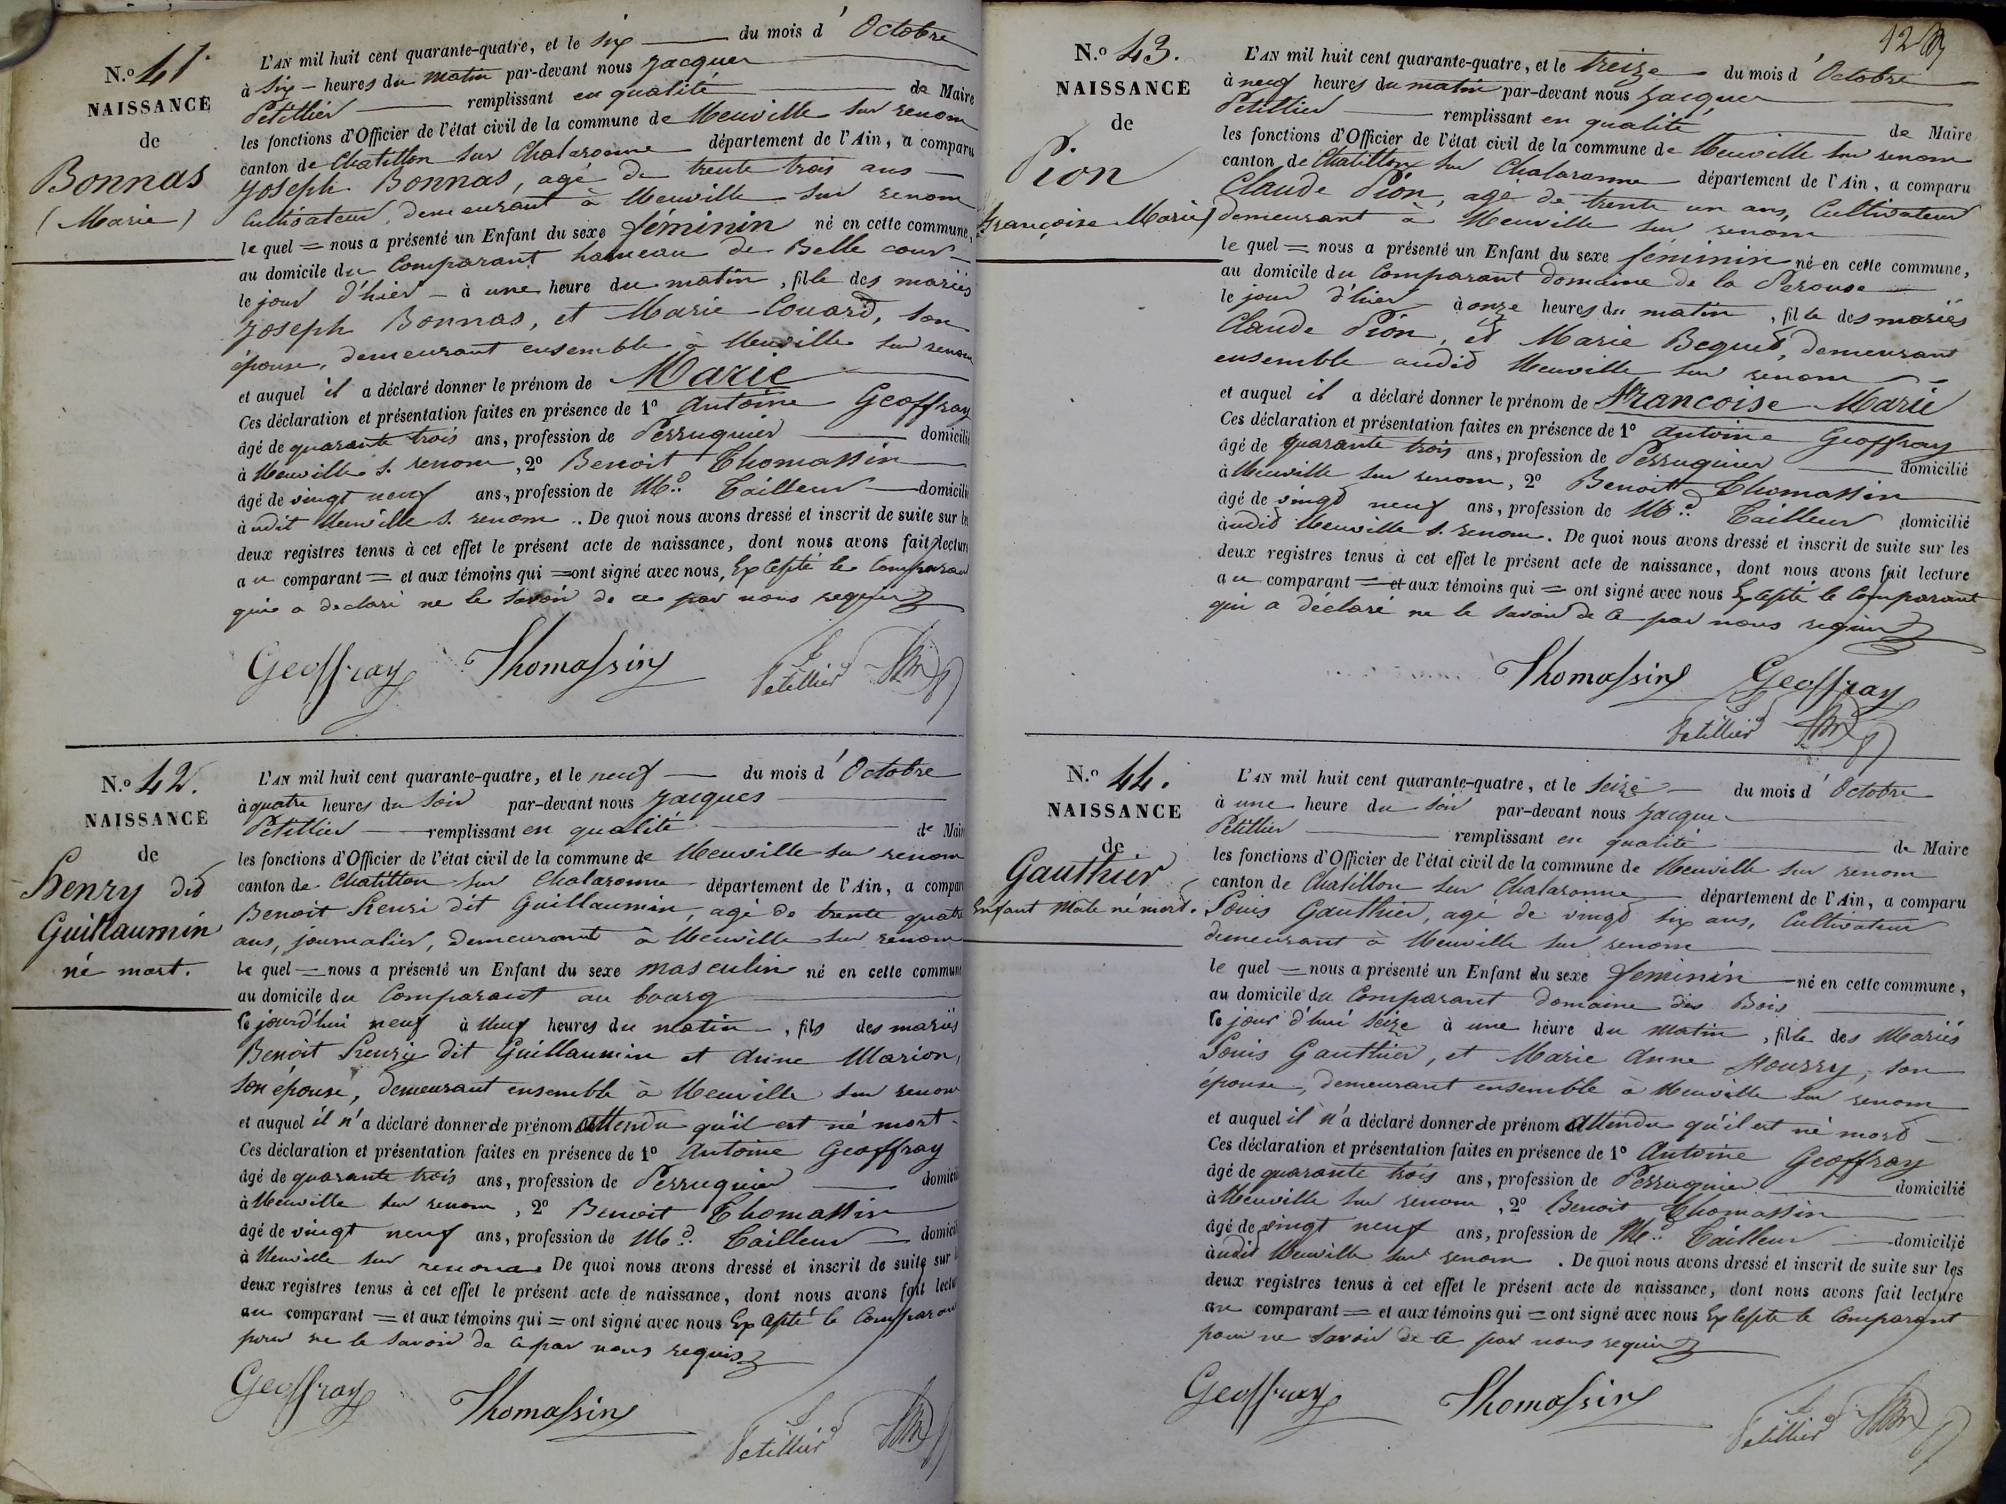 N.º 41.
NAISSANCE
de
Bonnas
(Marie)
L'AN mil huit cent quarante-quatre, et le six du mois d' Octobre
à six heures du matin par-devant nous Jacques
Petillier remplissant en qualité de Maire
les fonctions d'Officier de l'état civil de la commune de Neuville sur renom
canton de Chatillon sur Chalaronne département de l'Ain, a comparu
Joseph Bonnas, agé de trente trois ans
Cultivateur, demeurant à Neuville sur renom
le quel = nous a présenté un Enfant du sexe féminin né en cette commune,
au domicile du Comparant hameau de Belle cour
le jour d'hier à une heure du matin, fille des mariés
Joseph Bonnas, et Marie Couard, son
épouse, demeurant ensemble à Neuville sur renom
et auquel il a déclaré donner le prénom de Marie
Ces déclaration et présentation faites en présence de 1º Antoine Geoffray
âgé de quarante trois ans, profession de Perruquier domicilié
à Neuville s. renom, 2º Benoit Thomassin
âgé de vingt neuf ans, profession de Md. Tailleur domicilié
à udit Neuville s. renom. De quoi nous avons dressé et inscrit de suite sur les
deux registres tenus à cet effet le présent acte de naissance, dont nous avons fait lecture
au comparant = et aux témoins qui = ont signé avec nous, Excepté le Comparant
qui a declaré ne le savoir de ce par nous requis
Geoffray Thomassin Petillier
N.º 42.
NAISSANCE
de
Henry dit
Guillaumin
né mort.
L'AN mil huit cent quarante-quatre, et le neuf du mois d' Octobre
à quatre heures du Soir par-devant nous Jacques
Petillier remplissant en qualité de Maire
les fonctions d'Officier de l'état civil de la commune de Neuville sur renom
canton de Chatillon sur Chalaronne département de l'Ain, a comparu
Benoit Henri dit Guillaumin, agé de trente quatre
ans, journalier, demeurant à Neuville sur renom
le quel = nous a présenté un Enfant du sexe masculin né en cette commune
au domicile du Comparant au bourg
le jourd'hui neuf à Neuf heures du matin, fils des mariés
Benoit Henry dit Guillaumin et Anne Marion,
son épouse, demeurant ensemble à Neuville sur renom
et auquel il n'a déclaré donner de prénom attendu qu'il est né mort.
Ces déclaration et présentation faites en présence de 1º Antoine Geoffray
âgé de quarante trois ans, profession de Perruquier domicilié
à Neuville sur renom, 2º Benoit Thomassin
âgé de vingt neuf ans, profession de Md. Tailleur domicilié
à Neuville sur renom. De quoi nous avons dressé et inscrit de suite sur
deux registres tenus à cet effet le présent acte de naissance, dont nous avons fait lecture
au comparant = et aux témoins qui = ont signé avec nous Excepté le Comparant
pour ne le savoir de ce par nous requis
Geoffray Thomassin Petillier
N.º 43.
NAISSANCE
de
Pion
Françoise Marie
L'AN mil huit cent quarante-quatre, et le treize du mois d' Octobre
à neuf heures du matin par-devant nous Jacques
Petillier remplissant en qualité de Maire
les fonctions d'Officier de l'état civil de la commune de Neuville sur renom
canton de Chatillon sur Chalaronne département de l'Ain, a comparu
Claude Pion, agé de trente un ans, Cultivateur
demeurant à Neuville sur renom
le quel = nous a présenté un Enfant du sexe féminin né en cette commune,
au domicile du Comparant domaine de la Perouse
le jour d'hier à onze heures du matin, fille des mariés
Claude Pion, et Marie Beguet, demeurant
ensemble audit Neuville sur renom
et auquel il a déclaré donner le prénom de Francoise Marie
Ces déclaration et présentation faites en présence de 1º Antoine Geoffray
âgé de quarante trois ans, profession de Perruquier domicilié
à Neuville sur renom, 2º Benoit Thomassin
âgé de vingt neuf ans, profession de Md. Tailleur domicilié
àudit Neuville s. renom. De quoi nous avons dressé et inscrit de suite sur les
deux registres tenus à cet effet le présent acte de naissance, dont nous avons fait lecture
au comparant = et aux témoins qui = ont signé avec nous Excepté le Comparant
qui a déclaré ne le savoir de ce par nous requis
Thomassin Geoffray
Petillier
N.º 44.
NAISSANCE
de
Gauthier
Enfant Mâle né mort.
L'AN mil huit cent quarante-quatre, et le seize du mois d' Octobre
à une heure du soir par-devant nous Jacques
Petillier remplissant en qualité de Maire
les fonctions d'Officier de l'état civil de la commune de Neuville sur renom
canton de Chatillon sur Chalaronne département de l'Ain, a comparu
Louis Gauthier, agé de vingt six ans, Cultivateur
demeurant à Neuville sur renom
le quel = nous a présenté un Enfant du sexe feminin né en cette commune,
au domicile du Comparant domaine des Bois
le jour d'hui seize à une heure du matin, fille des Mariés
Louis Gauthier, et Marie Anne son
épouse, demeurant ensemble à Neuville sur renom
et auquel il n'a déclaré donner de prénom Attendu qu'il est né mort
Ces déclaration et présentation faites en présence de 1º Antoine Geoffray
âgé de quarante trois ans, profession de Perruquier domicilié
à Neuville sur renom, 2º Benoit Thomassin
âgé de vingt neuf ans, profession de Md. Tailleur domicilié
àudit Neuville sur renom. De quoi nous avons dressé et inscrit de suite sur les
deux registres tenus à cet effet le présent acte de naissance, dont nous avons fait lecture
au comparant = et aux témoins qui = ont signé avec nous Excepté le Comparant
pour ne savoir de ce par nous requis
Geoffray Thomassin Petillier